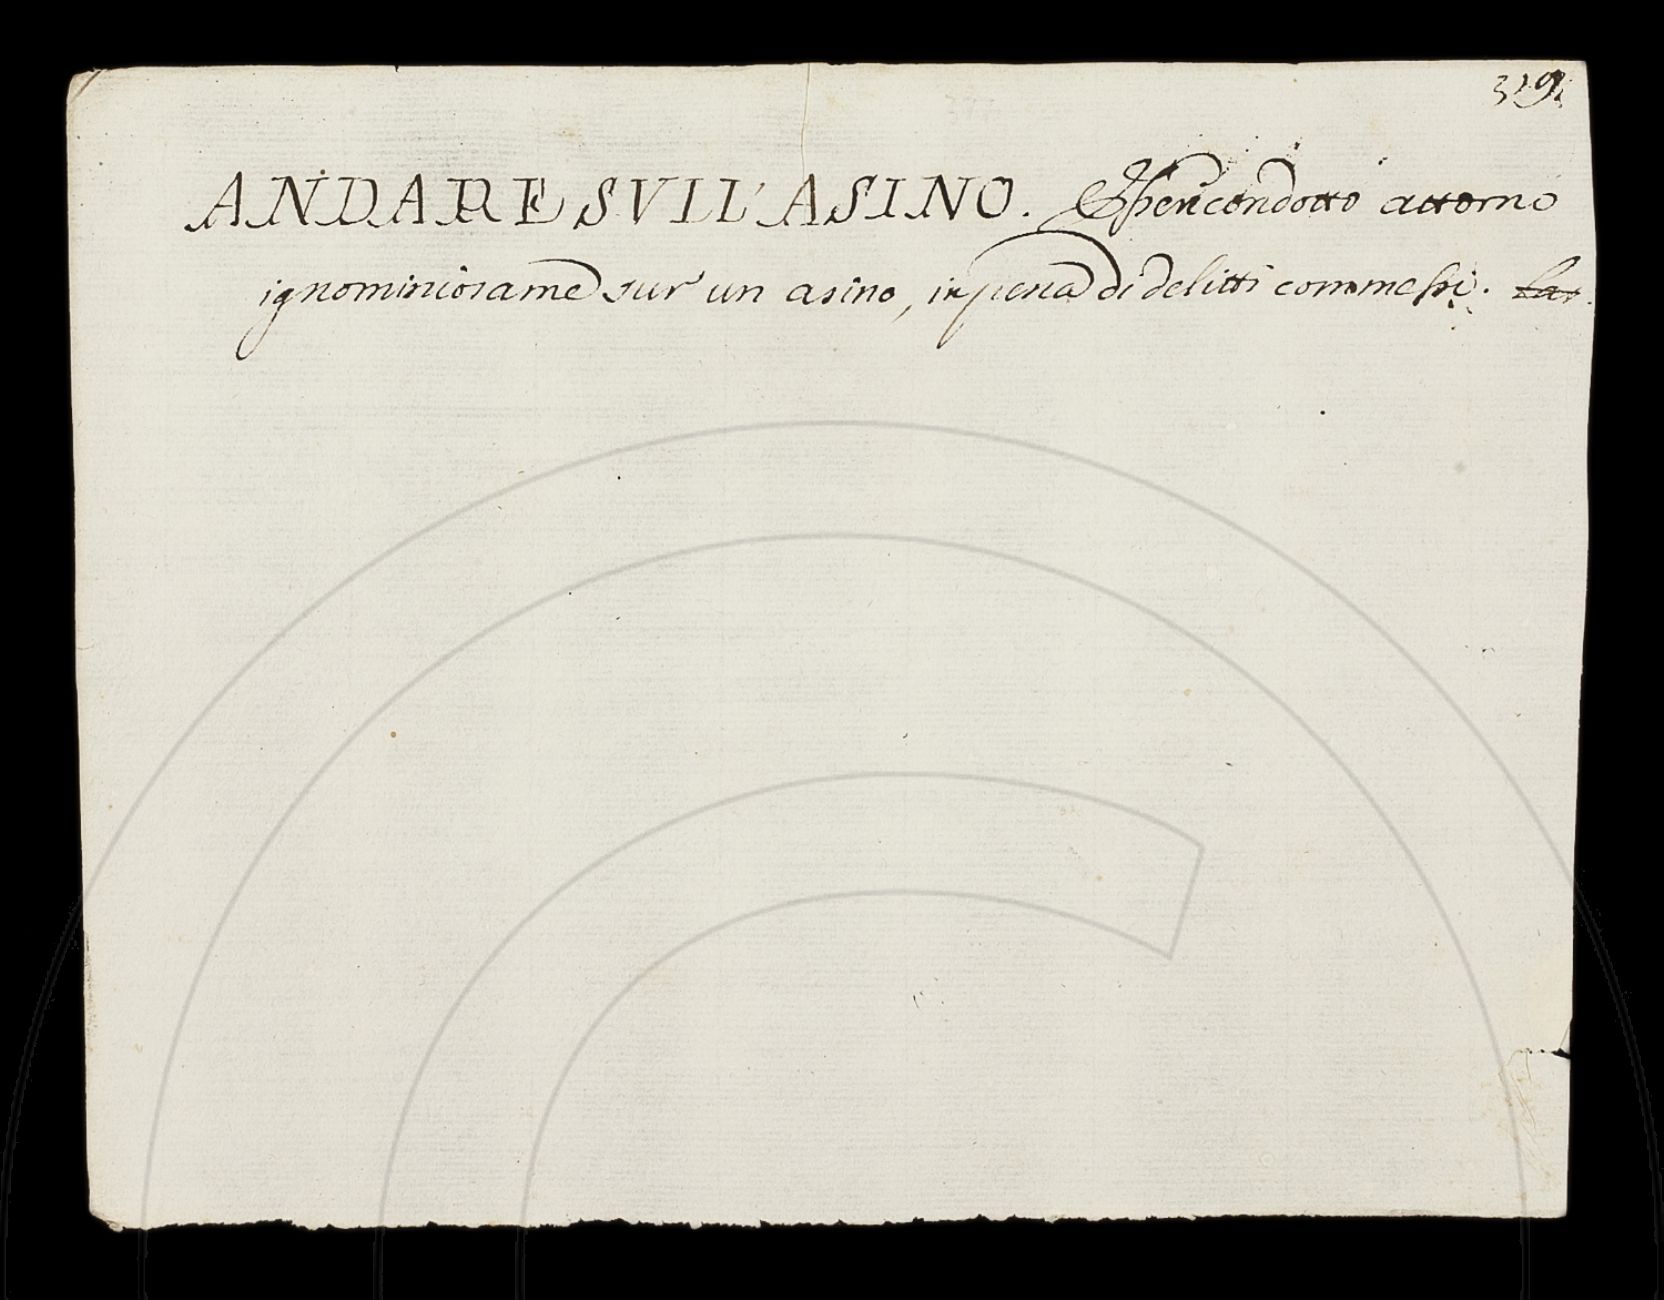 319.
ANDARE SVLL'ASINO. Esser condotto attorno
ignominiosame sur un asino, in pena di delitti commessi. Lat.